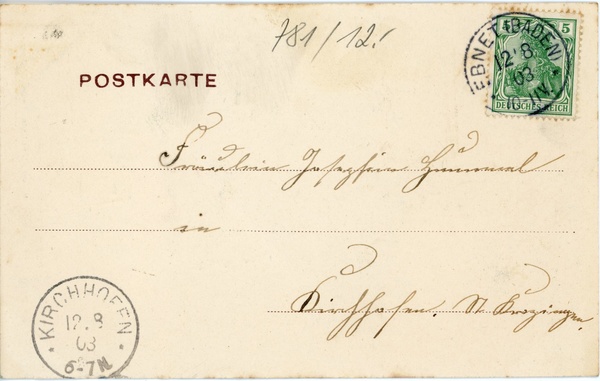 781/12.
POSTKARTE
EBNET (BADEN)
12.8
03
10-11V.
5
DEUTSCHES REICH
Fräulein Josephin Hummel
in
Kirchhofen. St. Krozingen.
KIRCHHOFEN
12.8
03
6-7N.